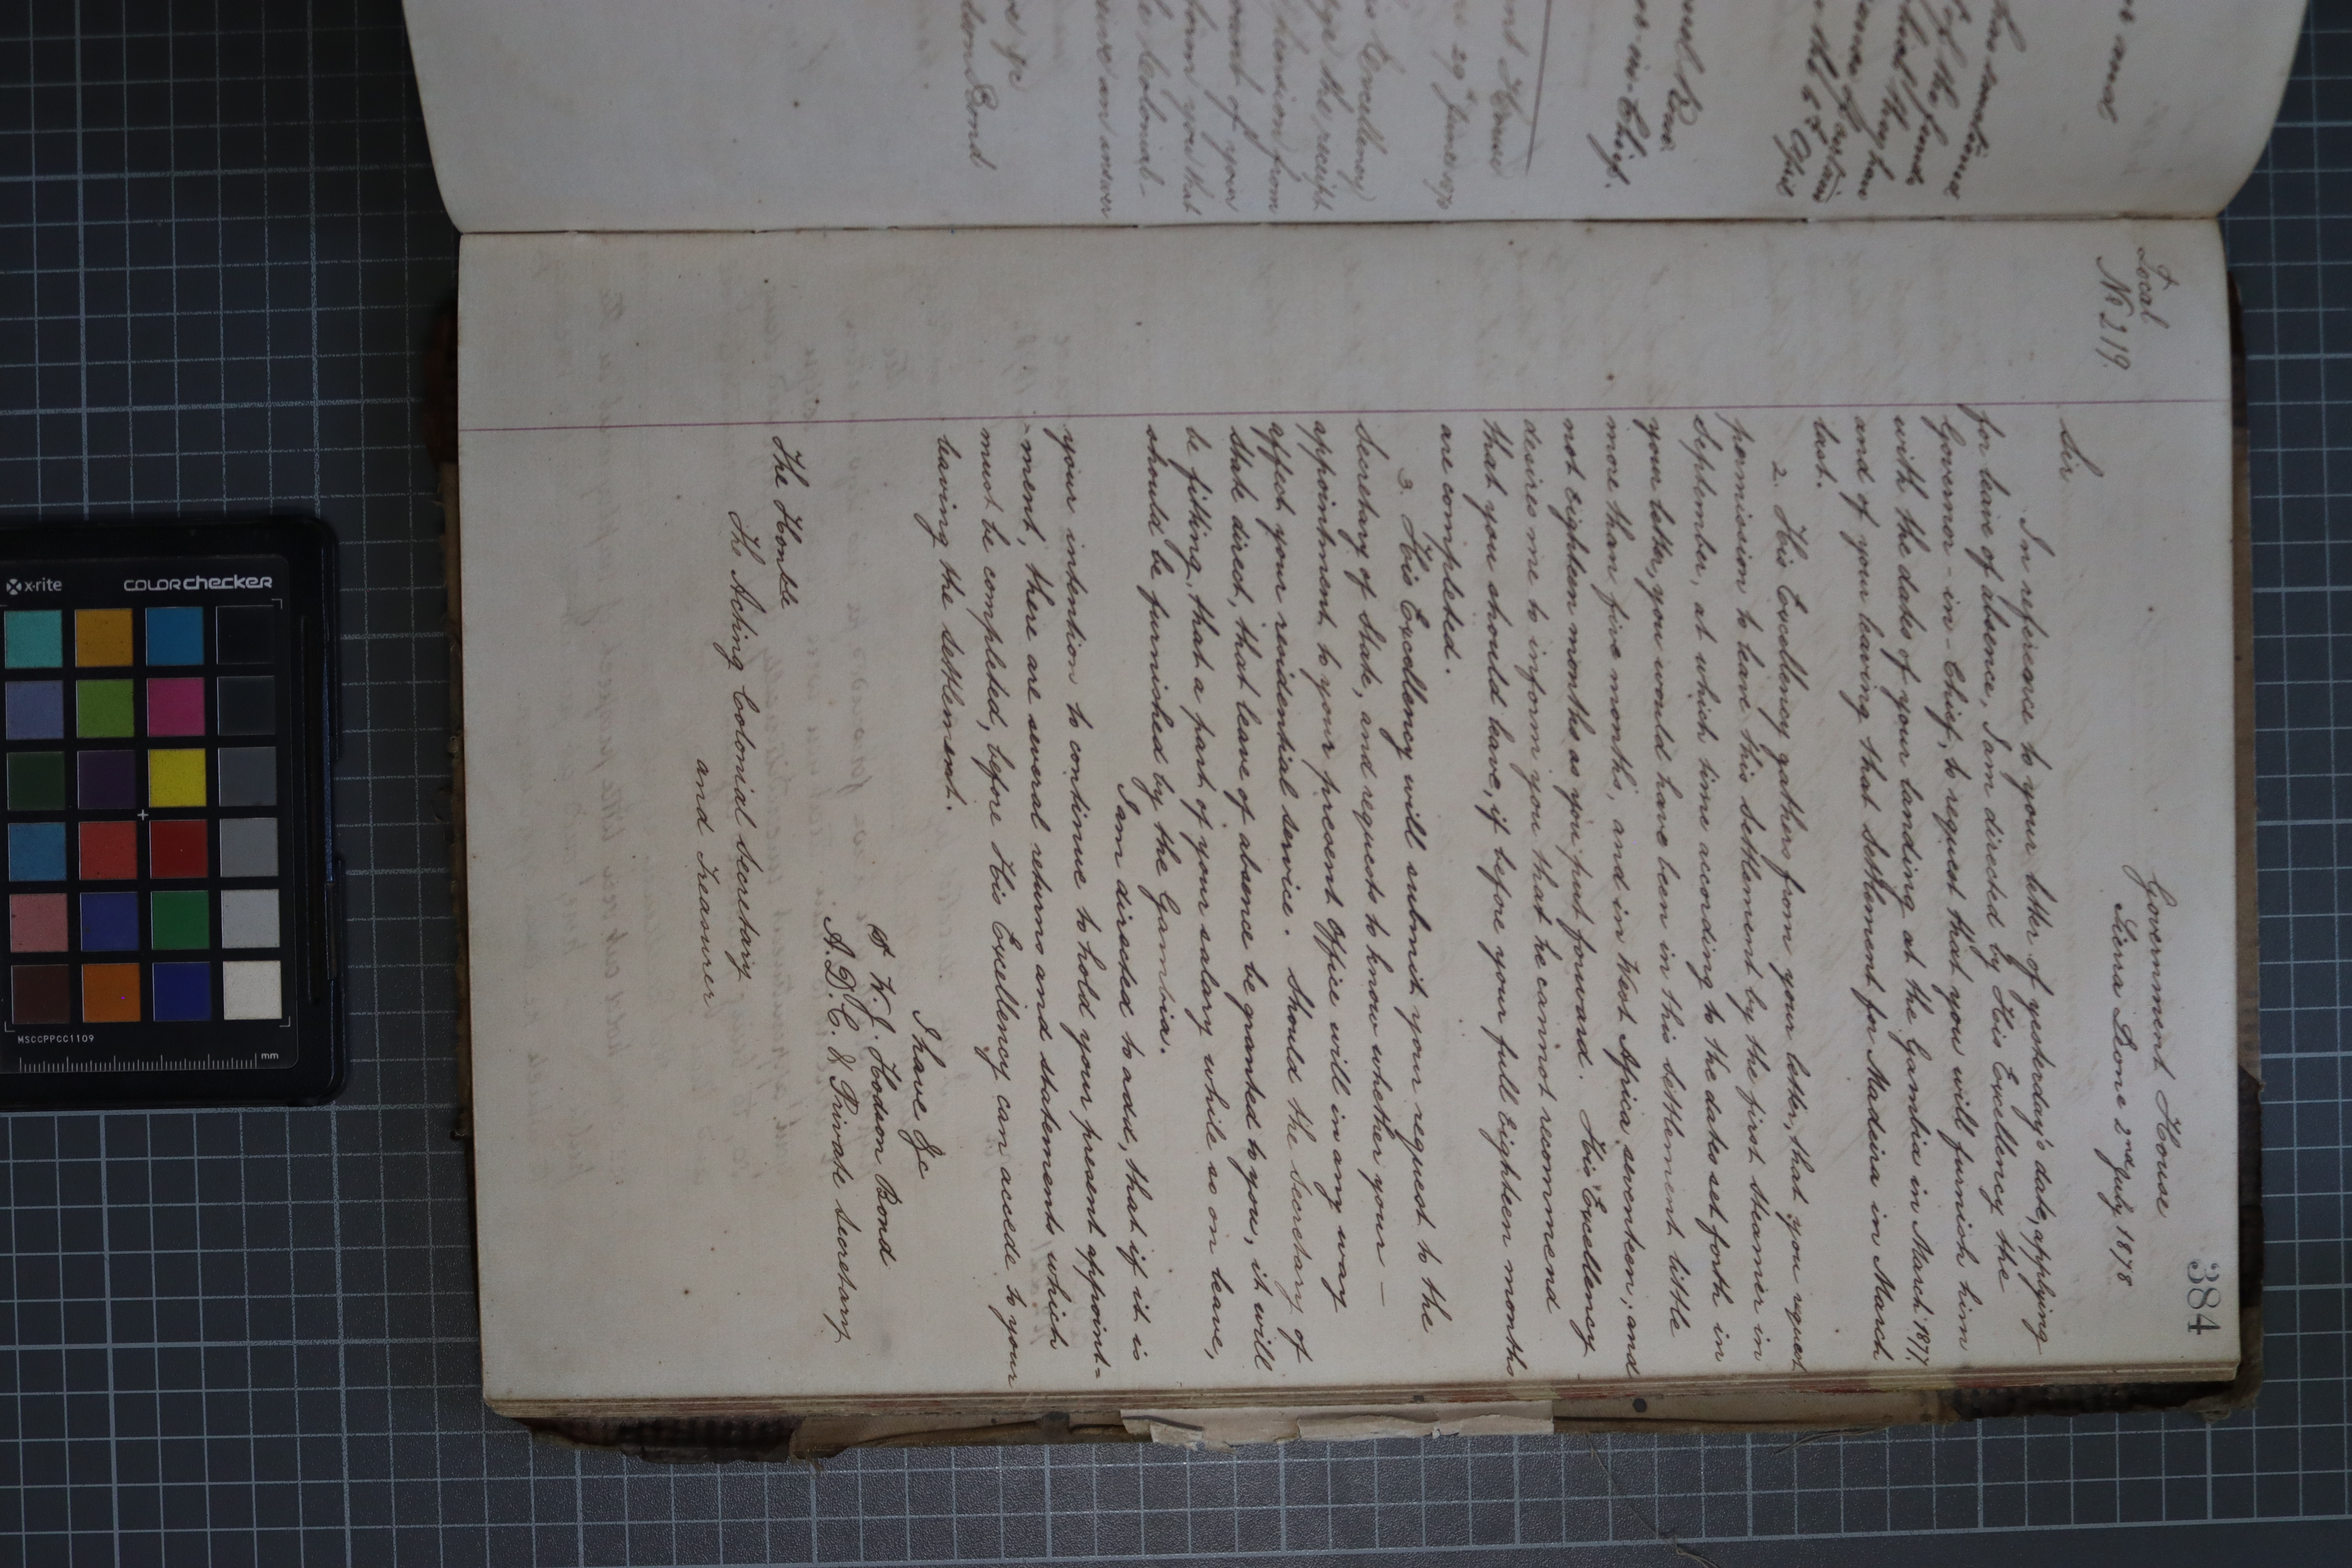 384
Local
No 219
Government House
Sierra Leone 2nd July 1878
Sir
In reference to your letter of yesterday's date, applying
for leave of absence, I am directed by His Excellency the
Governor-in-Chief, to request that you will furnish him
with the dates of your landing at the Gambia in March 1877,
and of your leaving that settlement for Madeira in March
last.
2. His Excellency gathers from your letter, that you request
permission to leave this settlement by the first steamer in
September, at which time according to the dates set forth in
your letter, you would have been in this settlement little
more than five months, and in West Africa seventeen, and
not eighteen months as you put forward. His Excellency
desires me to inform you that he cannot recommend
that you should leave, if before your full Eighteen months
are completed.
3. His Excellency will submit your request to the
Secretary of State, and requests to know whether your —
appointment to your present Office will in any way
affect your residential service. Should the Secretary of
State direct, that leave of absence be granted to you, it will
be fitting, that a part of your salary while so on leave,
should be furnished by the Gambia.
I am directed to add, that if it is
your intention to continue to hold your present appoint-
-ment, there are several returns and statements which
must be completed, before His Excellency can accede to your
leaving the settlement.
I have &c
W. J. Hodson Bond
A.D.C. & Private Secretary
The Honble
The Acting Colonial Secretary
and Treasurer
x-rite
colorchecker
MSCCPPCC1109
mm